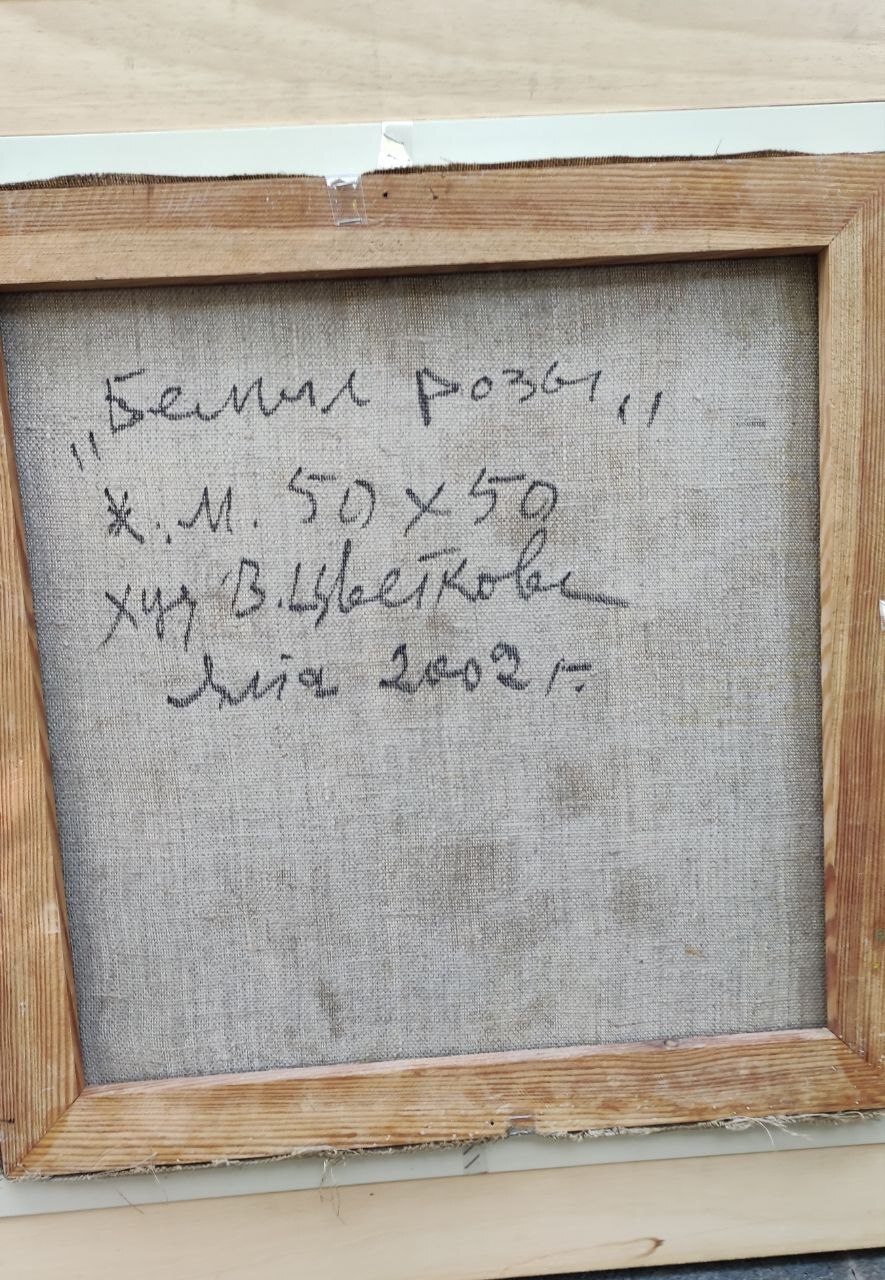 „Белые розы"
х.М. 50 х 50
худ В.Цветкова
Ялта 2002 г.